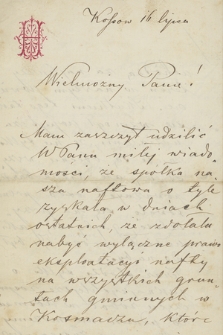 Kossow 16 lipca
Wielmożny Panie!
Mam zaszczyt udzielić
WPanu miłej wiado-
mości, że spółka na-
sza naftowa o tyle
zyskała w dniach
ostatnich, że zdołała
nabyć wyłączne prawo
eksploatacyi nafty
na wszystkich grun-
tach gminnych w
Kosmaczu, które